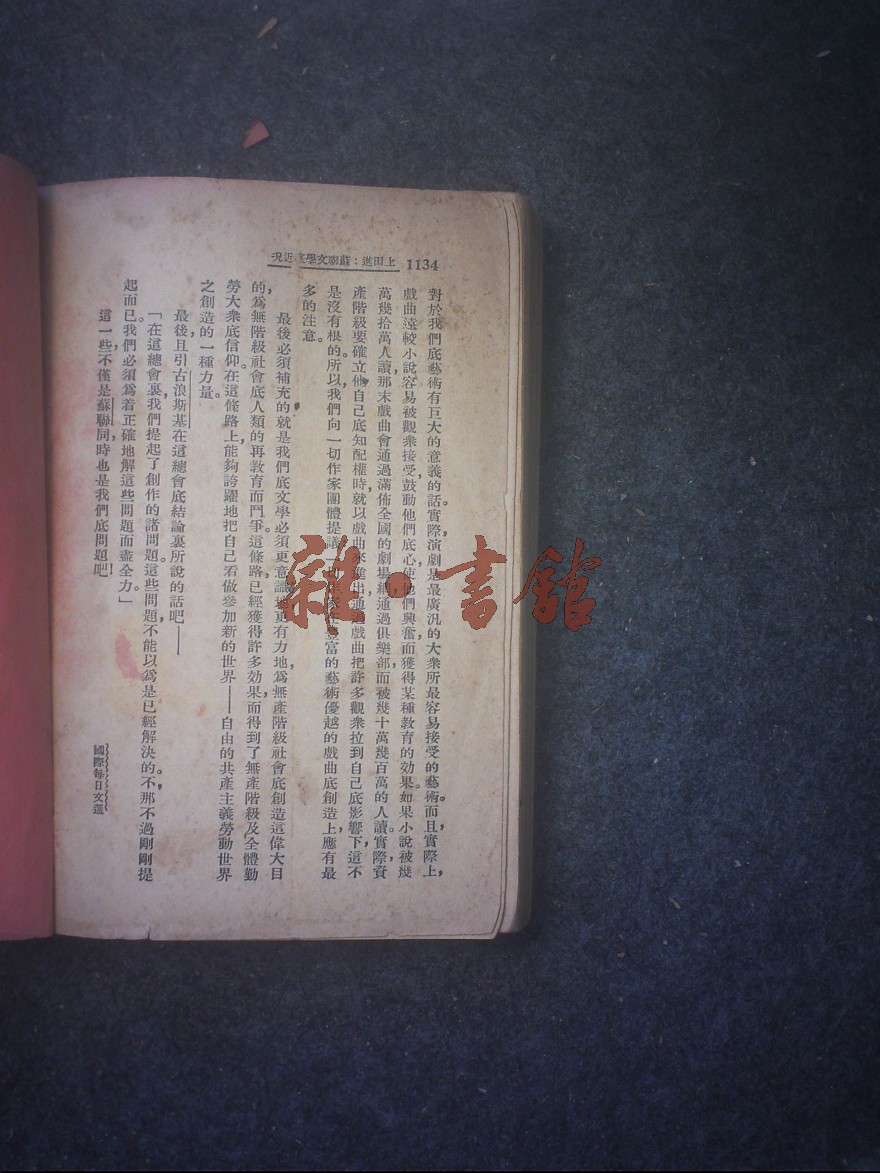 1134
上田進：蘇聯文學底近況
對於我們底藝術有巨大的意義的話。實際，演劇是最廣汎的大衆所最容易接受的藝術。而且，實際上，
戲曲遠較小說容易被觀衆接受，鼓動他們底心，使他們興奮，而獲得某種教育的效果。如果小說被幾
萬幾拾萬人讀，那末戲曲會通過滿佈全國的劇場網，通過俱樂部，而被幾十萬幾百萬的人讀。實際，資
產階級要確立他自己底知配權時，就以戲曲來進出，通過戲曲把許多觀衆拉到自己底影響下，這不
是沒有根的。所以，我們向一切作家團體提議一切富的藝術優越的戲曲底創造上，應有最
多的注意。
最後必須補充的就是我們底文學必須更意識地更有力地，爲無產階級社會底創造這偉大目
的，爲無階級社會底人類的再教育而鬥爭。這條路已經獲得許多效果，而得到了無產階級及全體勤
勞大衆底信仰。在這條路上，能夠誇躍地把自己看做參加新的世界——自由的共產主義勞動世界
之創造的一種力量。
最後，且引古浪斯基在這總會底結論裏所說的話吧——
「在這總會裏，我們提起了創作的諸問題。這些問題，不能以爲是已經解決的。不，那不過剛剛提
起而已。我們必須爲着正確地解這些問題而盡全力。」
這一些，不僅是蘇聯，同時也是我們底問題吧！
國際每日文選
雜·書館